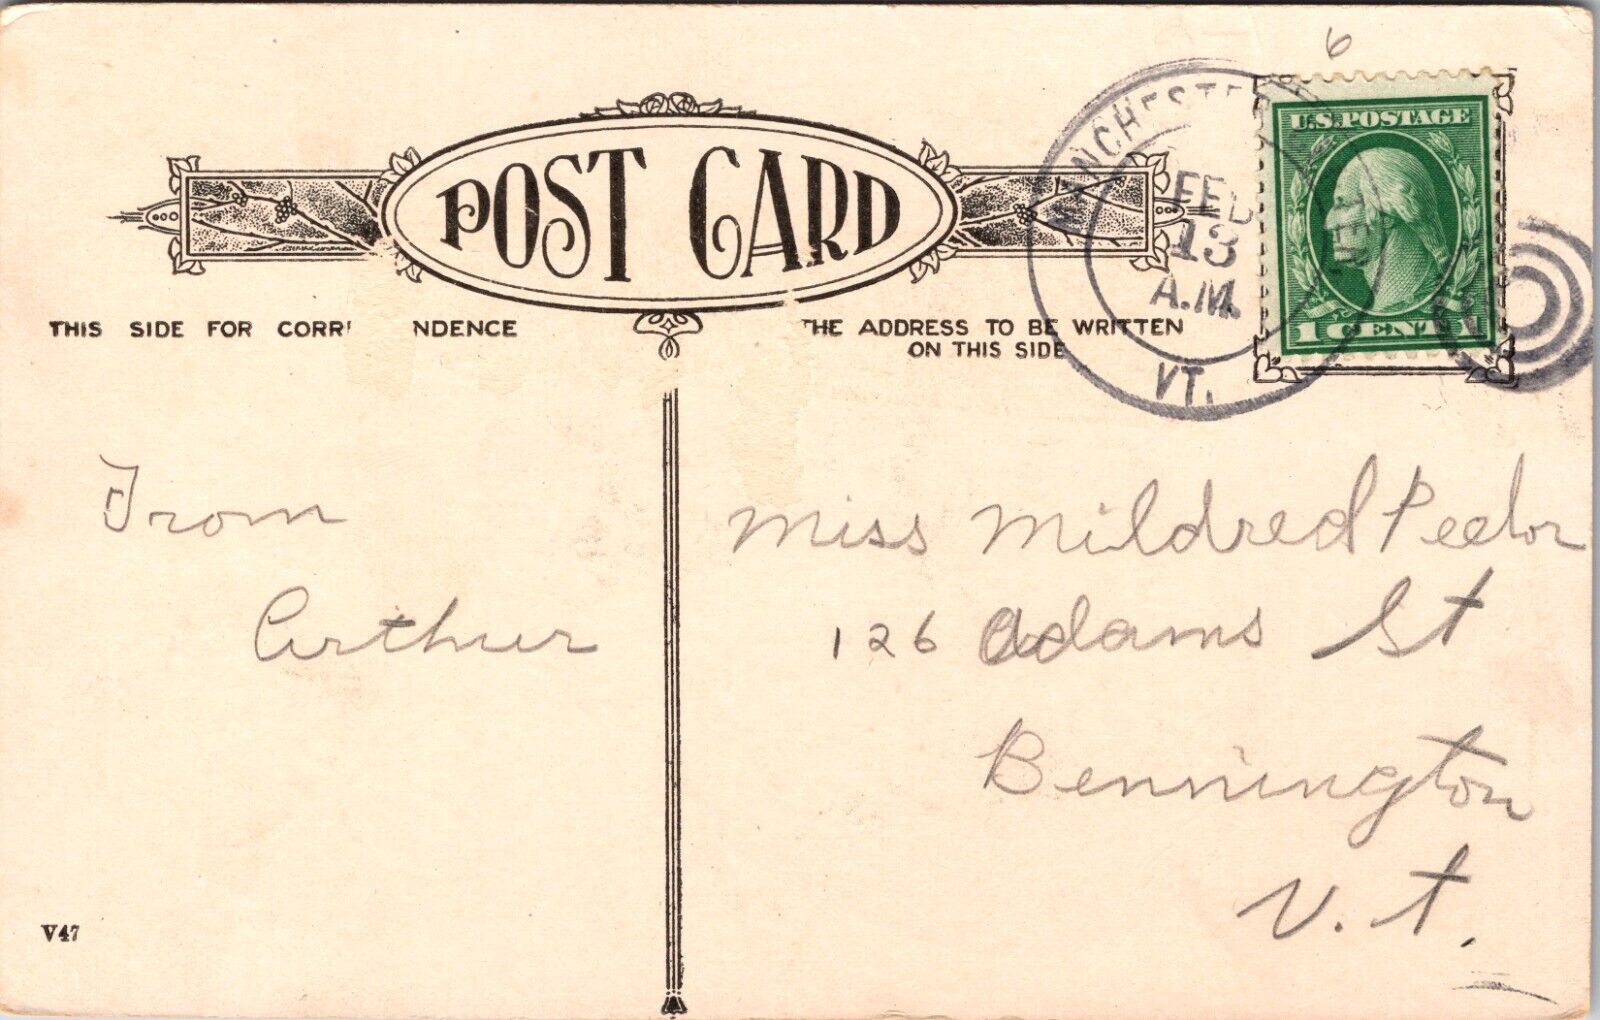 6
U.S. POSTAGE
MANCHESTER
FEB
13
A.M.
VT.
1 CENT 1
POST CARD
THIS SIDE FOR CORR NDENCE
THE ADDRESS TO BE WRITTEN
ON THIS SIDE
From
Arthur
Miss Mildred
126 Adams St
Bennington
V.t.
V47